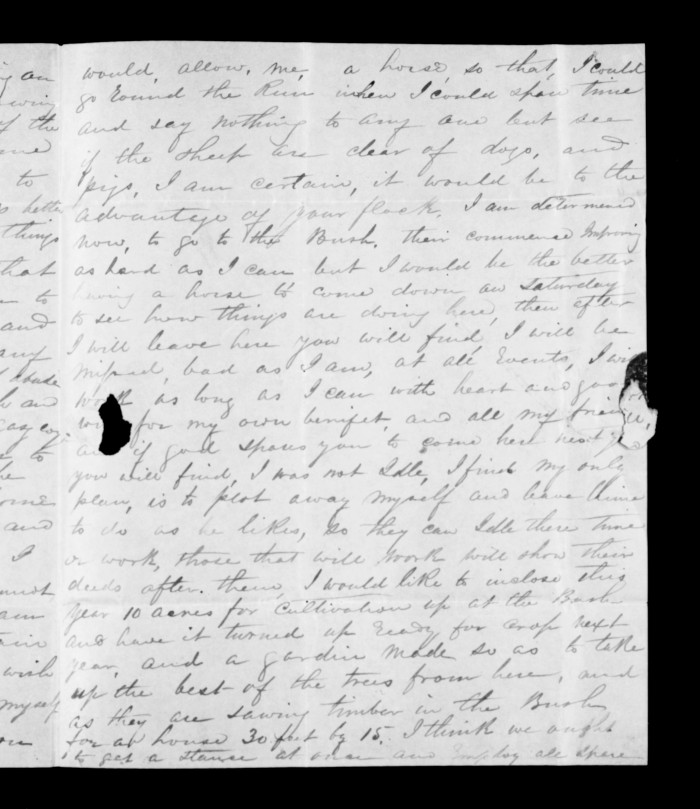 would, allow, me, a horse, so that, I could
go Round the Run when I could spare time
and say nothing to any one but see
if the sheep are clear of dogs, and
pigs, I am certain, it would be to the
advantage of your flock. I am determened
now, to go to the Bush. their commence Improving
as hard as I can but I would be the better
having a horse to come down on Saturday
to see how things are doing here, then after
I will leave here you will find, I will be
missed, bad as I am, at all Events, I
work as long as I can with heart and
for my own benifet, and all my
if god spares you to come here next
you will find, I was not Idle, I find my only
plan, is to plot away myself and leave
to do as he likes, so they can Idle there time
or work, those that will work will show their
deeds after them, I would like to inclose this
year 10 acres for Cultivation up at the Bush
and have it turned up Ready for crop next
year, and a gardin made so as to take
up the best of the trees from here, and
as they are sawing timber in the Bush
for a house 30 feet by 15. I think we ought
to get a stance at once and Employ all spare
ing an
of the
to
better
things
that
to
and
any
and
easy
to
and
I
am
wish
myself